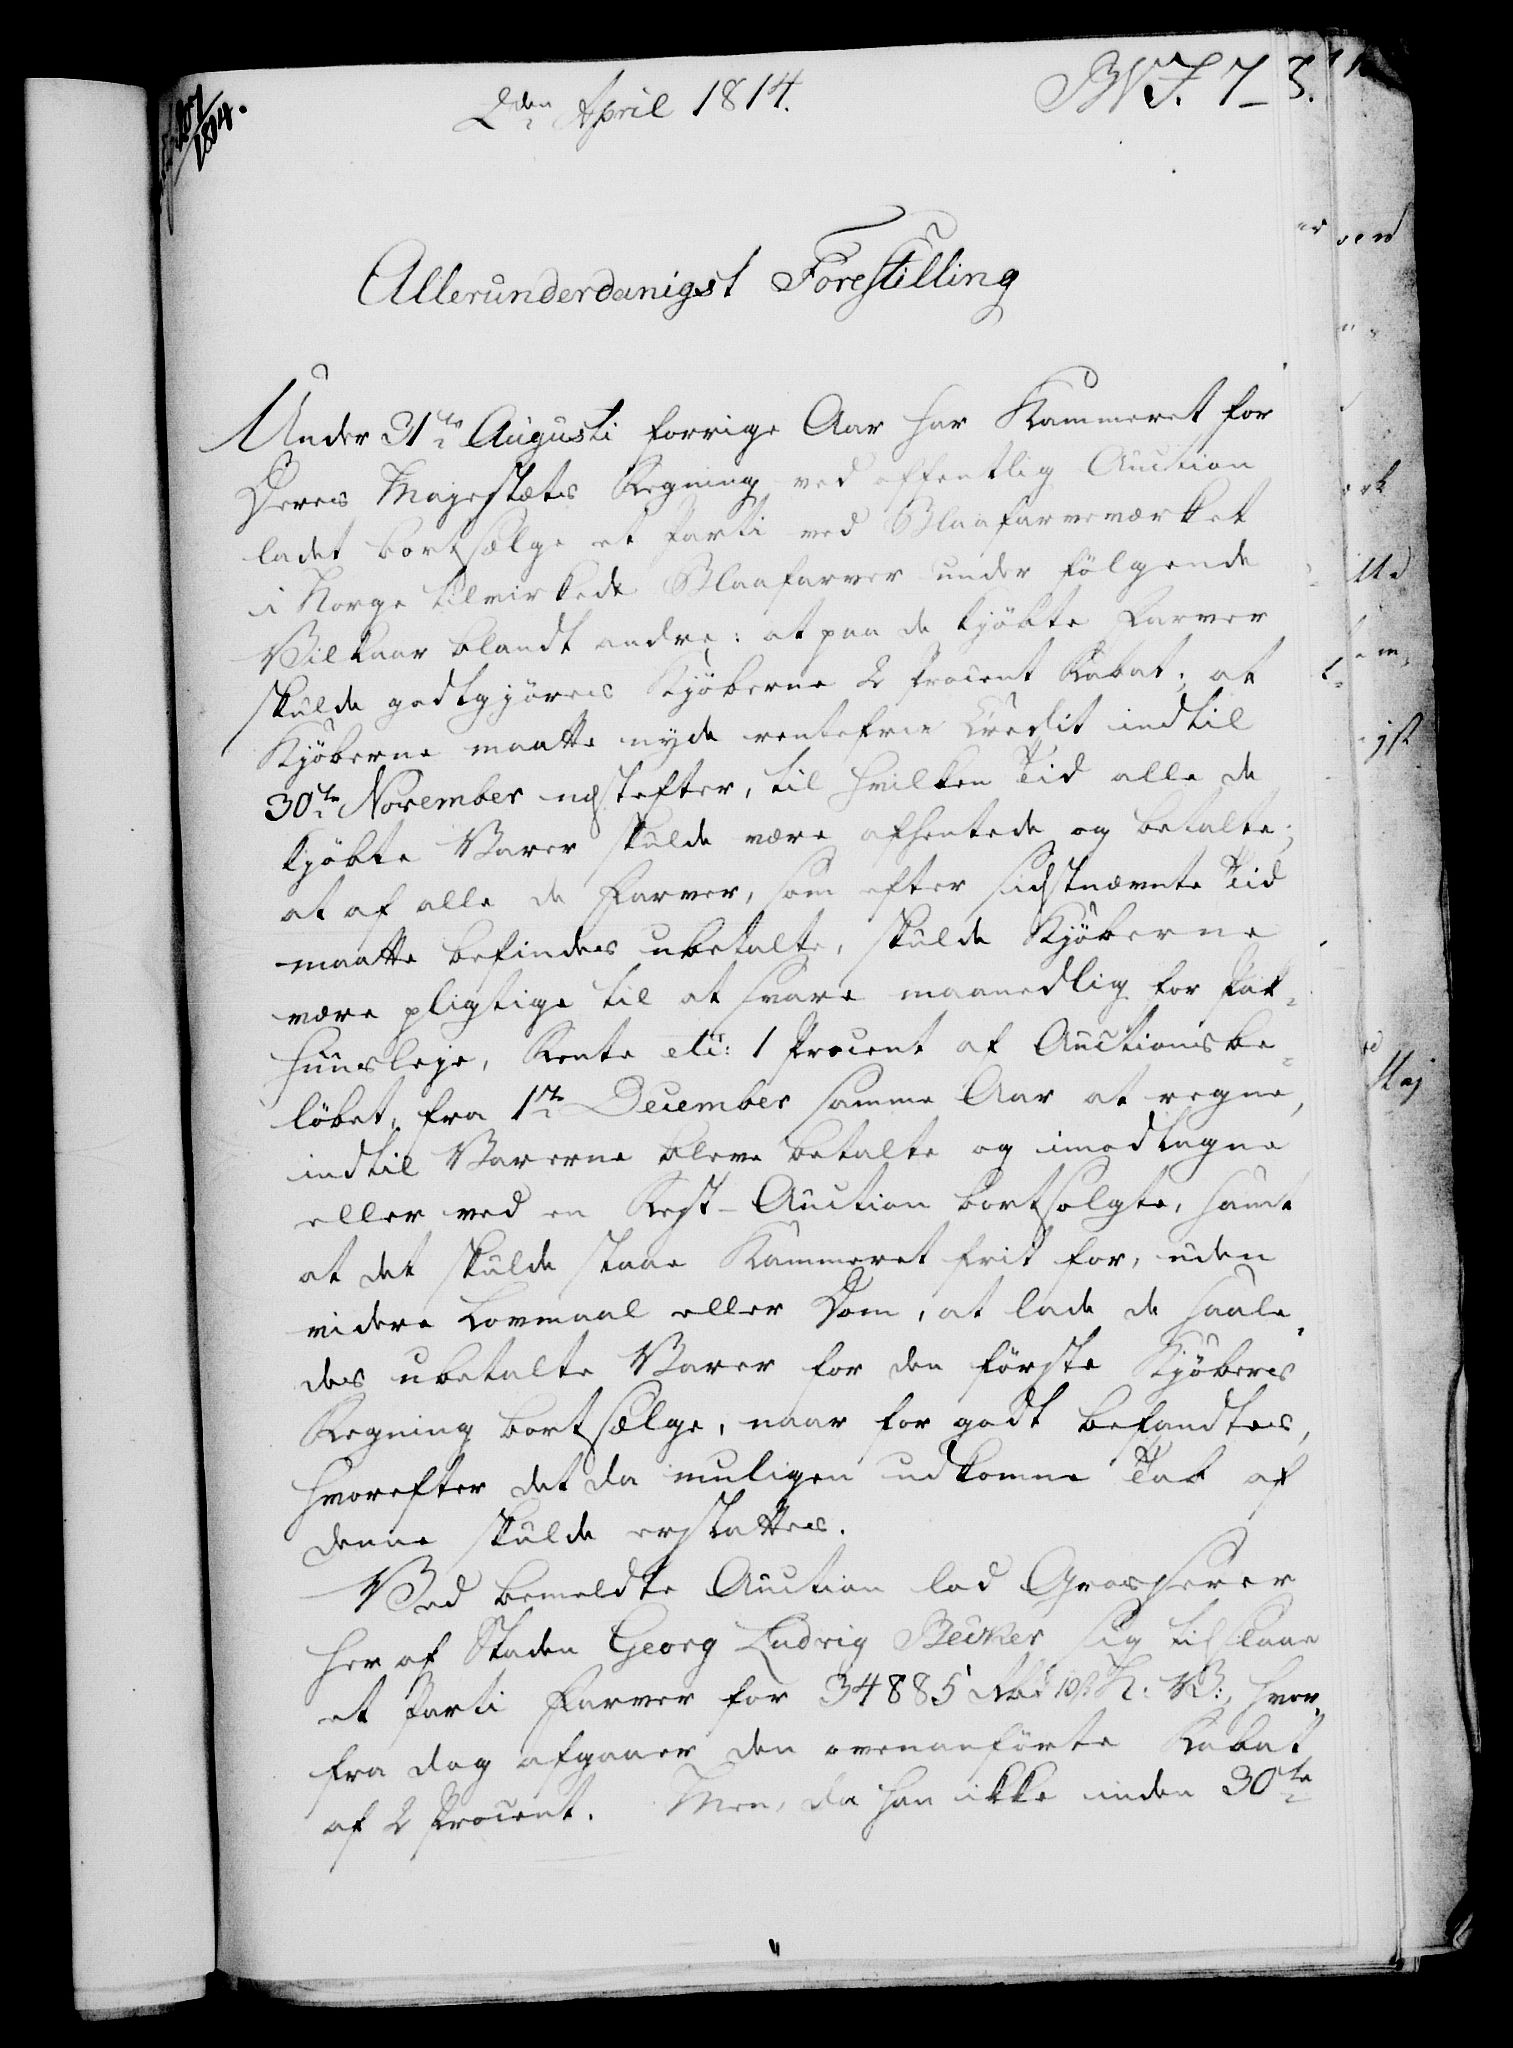 2den April 1814.
Allerunderdanigst Forestilling
Under 31te Augusti forrige Aar har Kammeret for
Deres Majestæts Regning ved offentlig Auction
ladet bortsælge et Parti ved Blaafarveværket
i Norge tilvirkede Blaafarver under følgende
Vilkaar blandt andre: at paa de kjøbte Farver
skulde godtgjøres Kjøberne 2 Procent Rabat; at
Kjøberne maatte nyde rentefrie Credit indtil
30te November næstefter, til hvilken Tid alle de
kjøbte Varer skulde være afhentede og betalte;
at af alle de Farver, som efter sidstnævnte Tid
maatte befindes ubetalte, skulde Kjøberne
være pligtige til at svare maanedlig for Pak-
huusleje, Rente etc: 1 Procent af Auctionsbe-
løbet, fra 1te December samme Aar at regne,
indtil Varerne bleve betalte og imodtagne
eller ved en Rest-Auction bortsolgte, samt
at det skulde staae Kammeret frit for, uden
videre Lovmaal eller Dom, at lade de saale-
des ubetalte Varer for den første Kjøbers
Regning bortsælge, naar for godt befandtes,
hvorefter det da muligen udkomne Tab af
denne skulde erstattes.
Ved bemeldte Auction lod Grosserer
her af Staden Georg Ludvig Becker sig tilslaae
et Parti Farver for 34885 Rbd 10 s N: V:, hvor-
fra dog afgaaer den ovenanførte Rabat
af 2 Procent. Men, da han ikke inden 30te